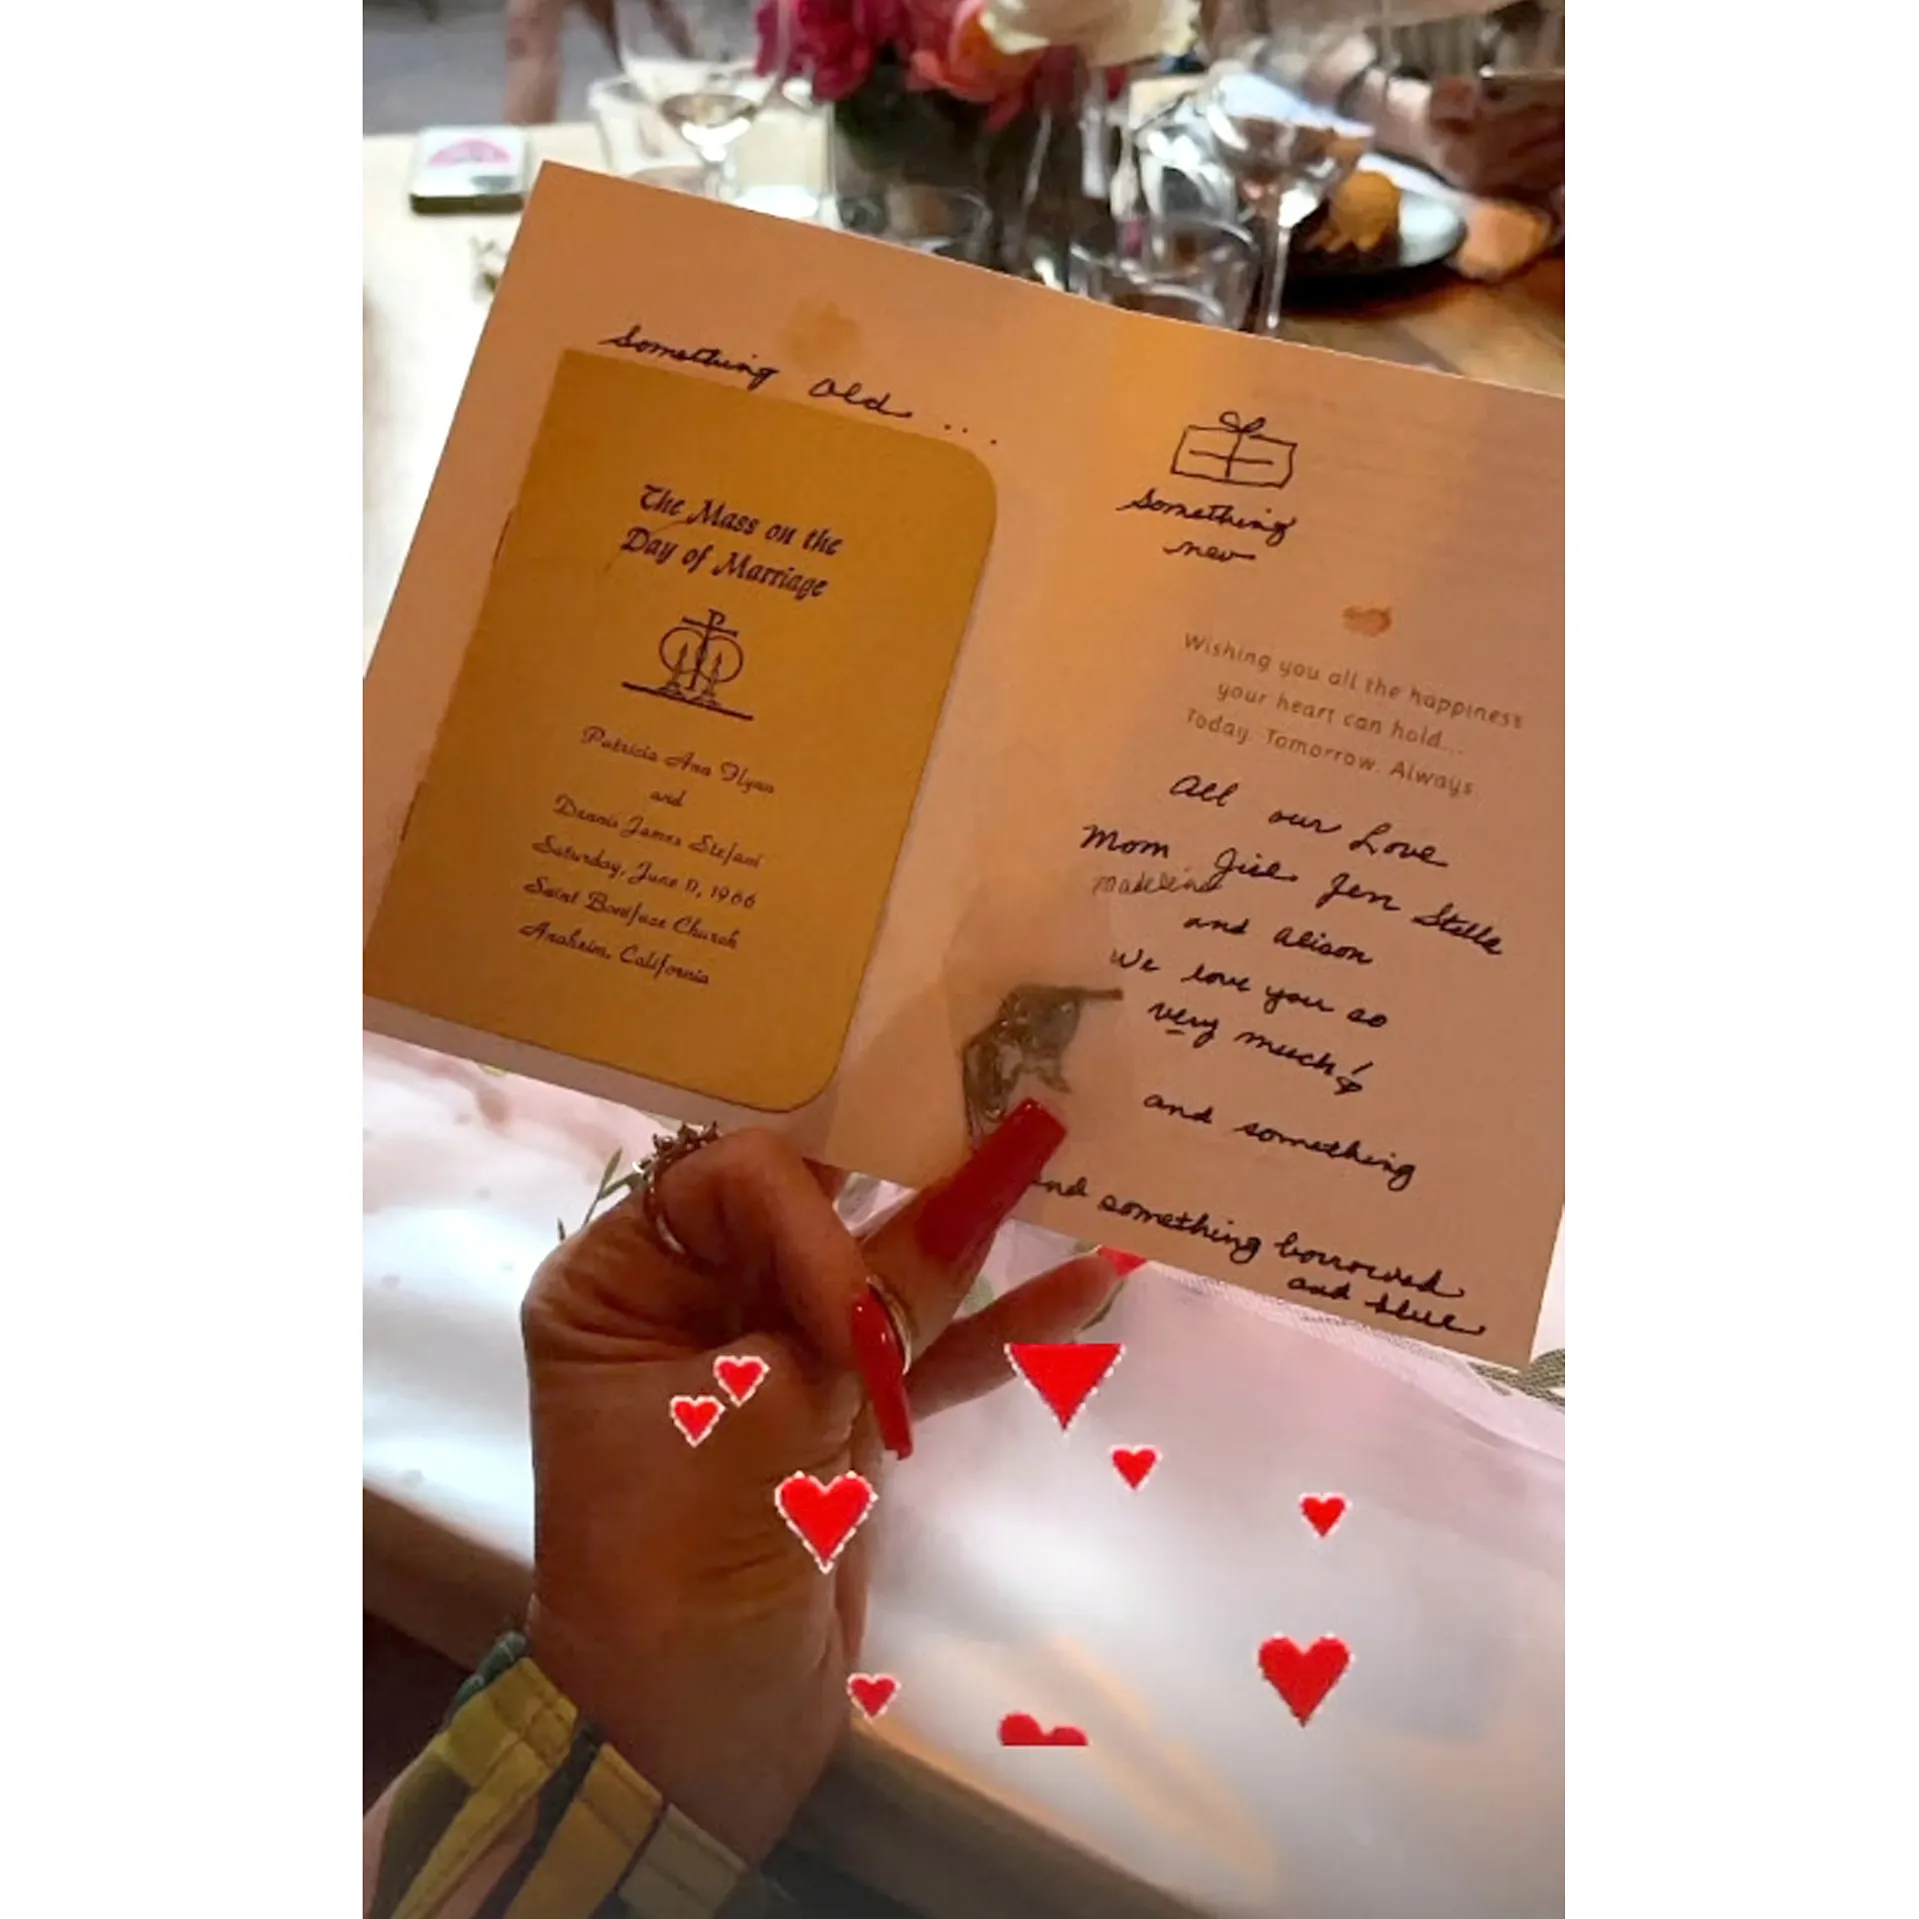 Something Old ...
The Mass on the
Day of Marriage
Patricia Ann Flynn
and
Dennis James Stefani
Saturday, June 11, 1966
Saint Boniface Church
Anaheim, California
Something
new
Wishing you all the happiness
your heart can hold...
Today. Tomorrow. Always.
All our Love
Mom Jill Jen Stella
Madeline
and Alison
We love you so
very much!
and something
and something borrowed
and blue